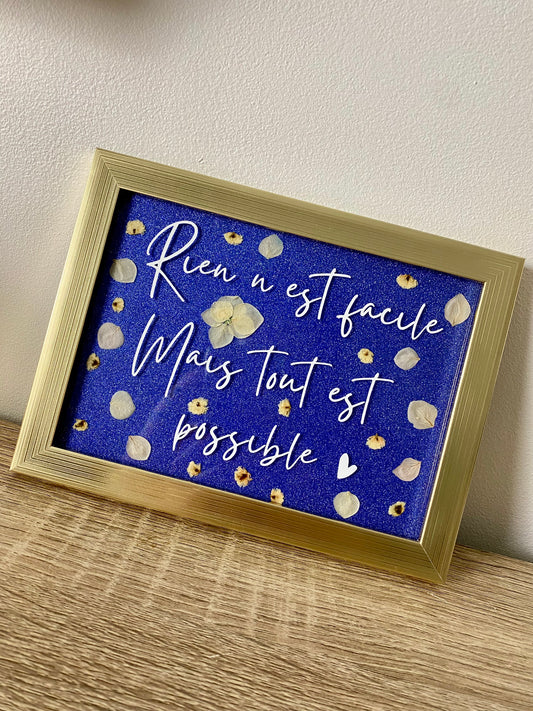 Rien n est facile
Mais tout est
possible